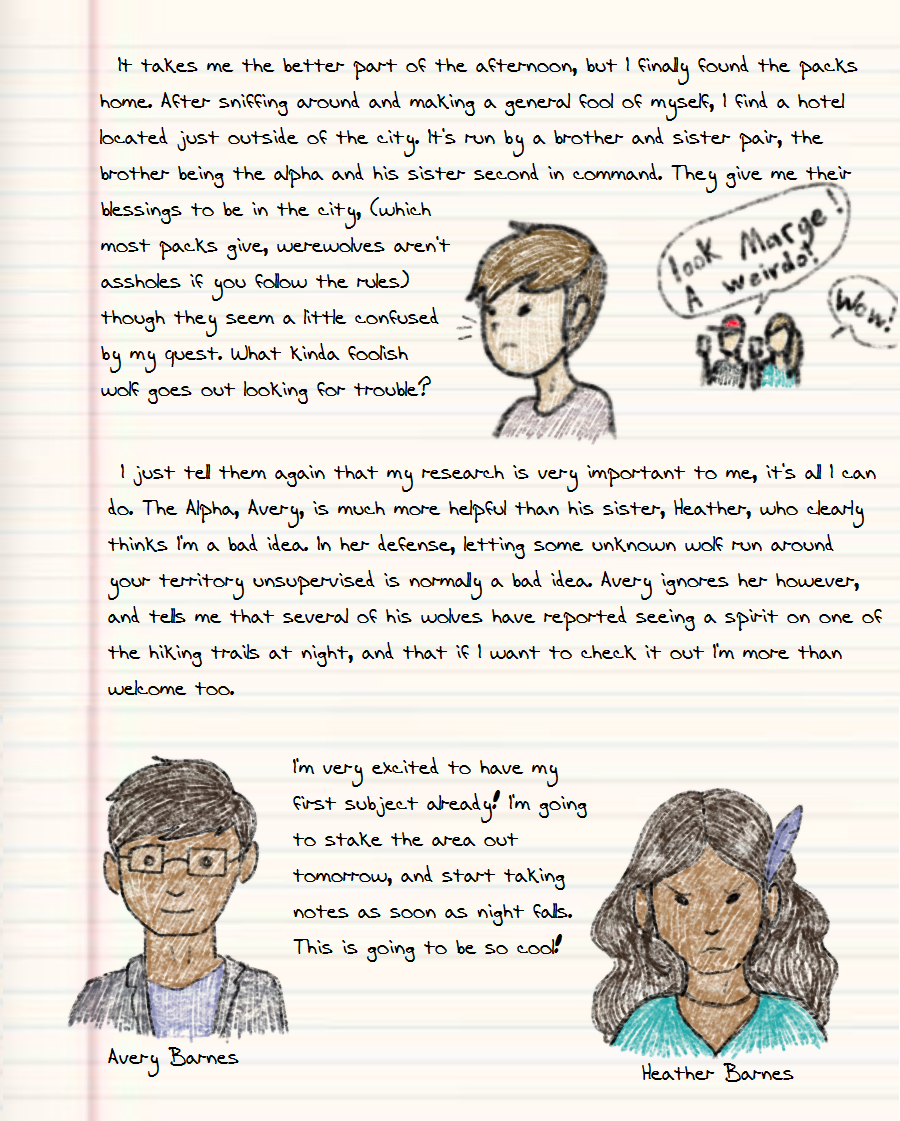 It takes me the better part of the afternoon, but I finally found the packs
home. After sniffing around and making a general fool of myself, I find a hotel
located just outside of the city. It's run by a brother and sister pair, the
brother being the alpha and his sister second in command. They give me their
blessings to be in the city, (which
most packs give, werewolves aren't
assholes if you follow the rules)
though they seem a little confused
by my quest. What kinda foolish
wolf goes out looking for trouble?
look Marge!
A weirdo!
Wow!
I just tell them again that my research is very important to me, it's all I can
do. The Alpha, Avery, is much more helpful than his sister, Heather, who clearly
thinks I'm a bad idea. In her defense, letting some unknown wolf run around
your territory unsupervised is normally a bad idea. Avery ignores her however,
and tells me that several of his wolves have reported seeing a spirit on one of
the hiking trails at night, and that if I want to check it out I'm more than
welcome too.
I'm very excited to have my
first subject already! I'm going
to stake the area out
tomorrow, and start taking
notes as soon as night falls.
This is going to be so cool!
Avery Barnes
Heather Barnes